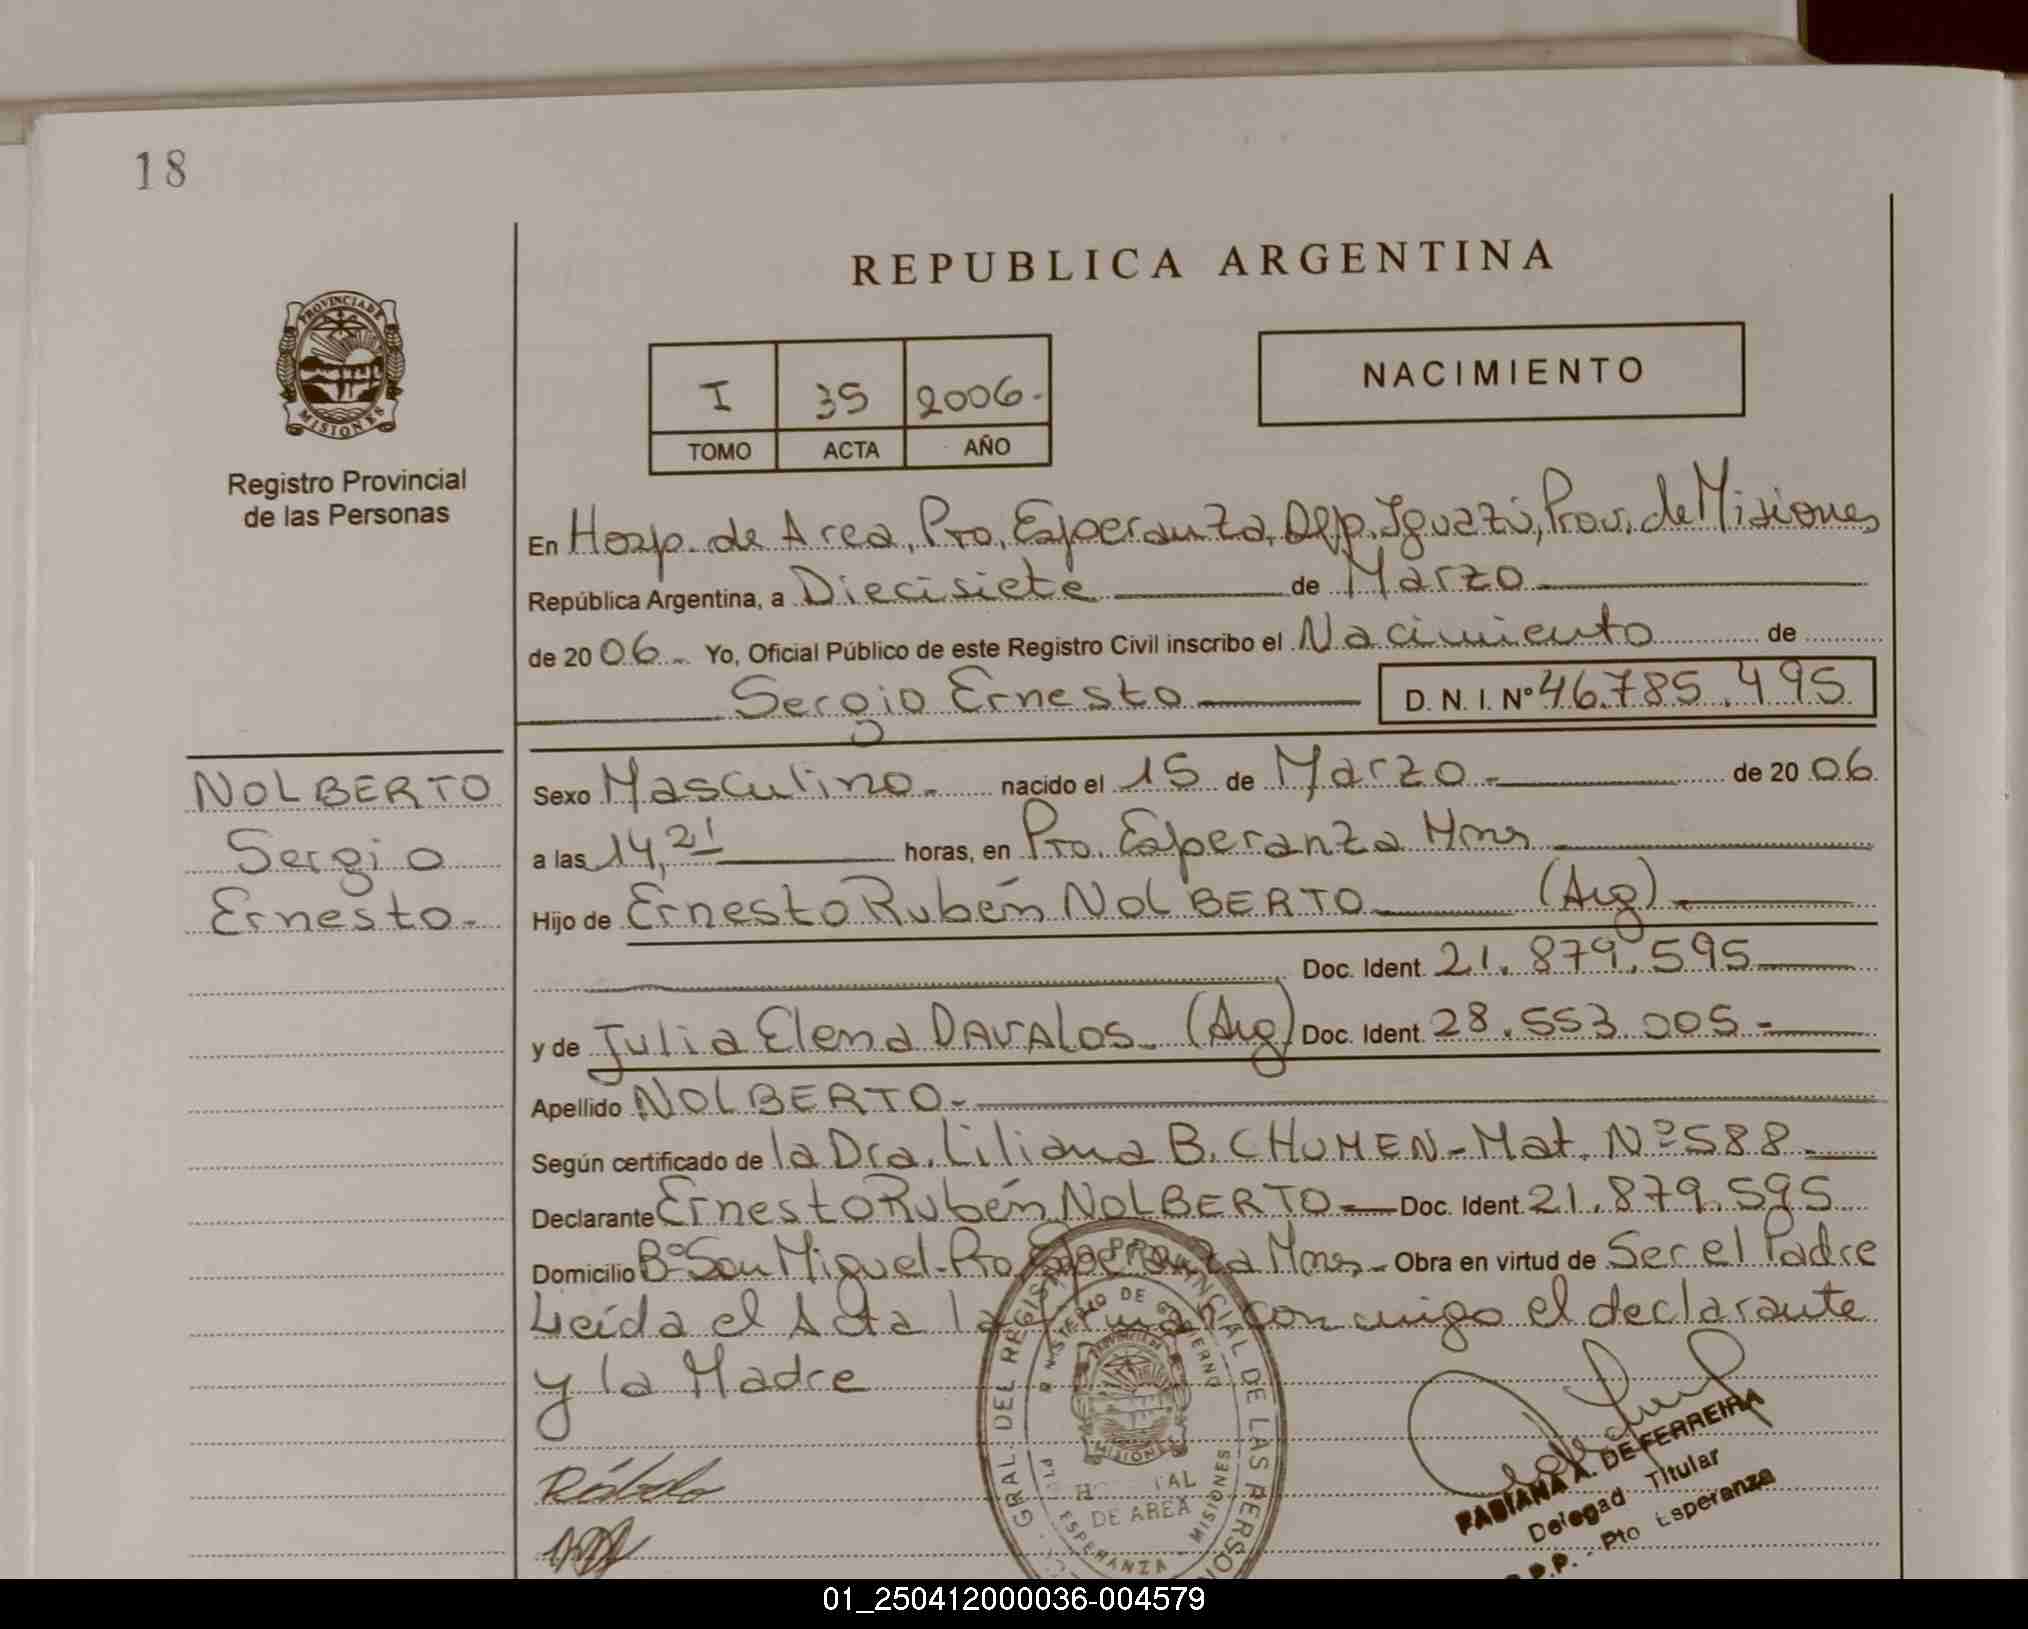 18
REPUBLICA ARGENTINA
PROVINCIA DE
MISIONES
Registro Provincial
de las Personas
I 35 2006.-
TOMO ACTA AÑO
NACIMIENTO
En Hosp. de Area, Pto. Esperanza, Dpp. Iguazú, Prov. de Misiones
República Argentina, a Diecisiete de Marzo
de 2006.- Yo, Oficial Público de este Registro Civil inscribo el Nacimiento de
Sergio Ernesto D. N. I. Nº 46.785.495
NOLBERTO
Sergio
Ernesto.-
Sexo Masculino.- nacido el 15 de Marzo.- de 2006
a las 14,21 horas, en Pto. Esperanza Mnes
Hijo de Ernesto Rubén NOLBERTO (Arg).-
Doc. Ident. 21.879.595
y de Julia Elena DAVALOS.- (Arg) Doc. Ident. 28.553.005.-
Apellido NOLBERTO.-
Según certificado de la Dra. Liliana B. CHUMEN - Mat. Nº 588.-
Declarante Ernesto Rubén NOLBERTO Doc. Ident. 21.879.595
Domicilio Bº San Miguel - Pto Esperanza Mnes.- Obra en virtud de Ser el Padre
Leída el Acta la firman con migo el declarante
y la Madre
GRAL. DEL REGISTRO PROVINCIAL DE LAS PERSON
MINISTERIO DE GOBIERNO
MISIONES
HOSPITAL
DE AREA
ESPERANZA - MISIONES
FABIANA A. DE FERREIRA
Delegad Titular
R.P.P. - Pto Esperanza
01_250412000036-004579